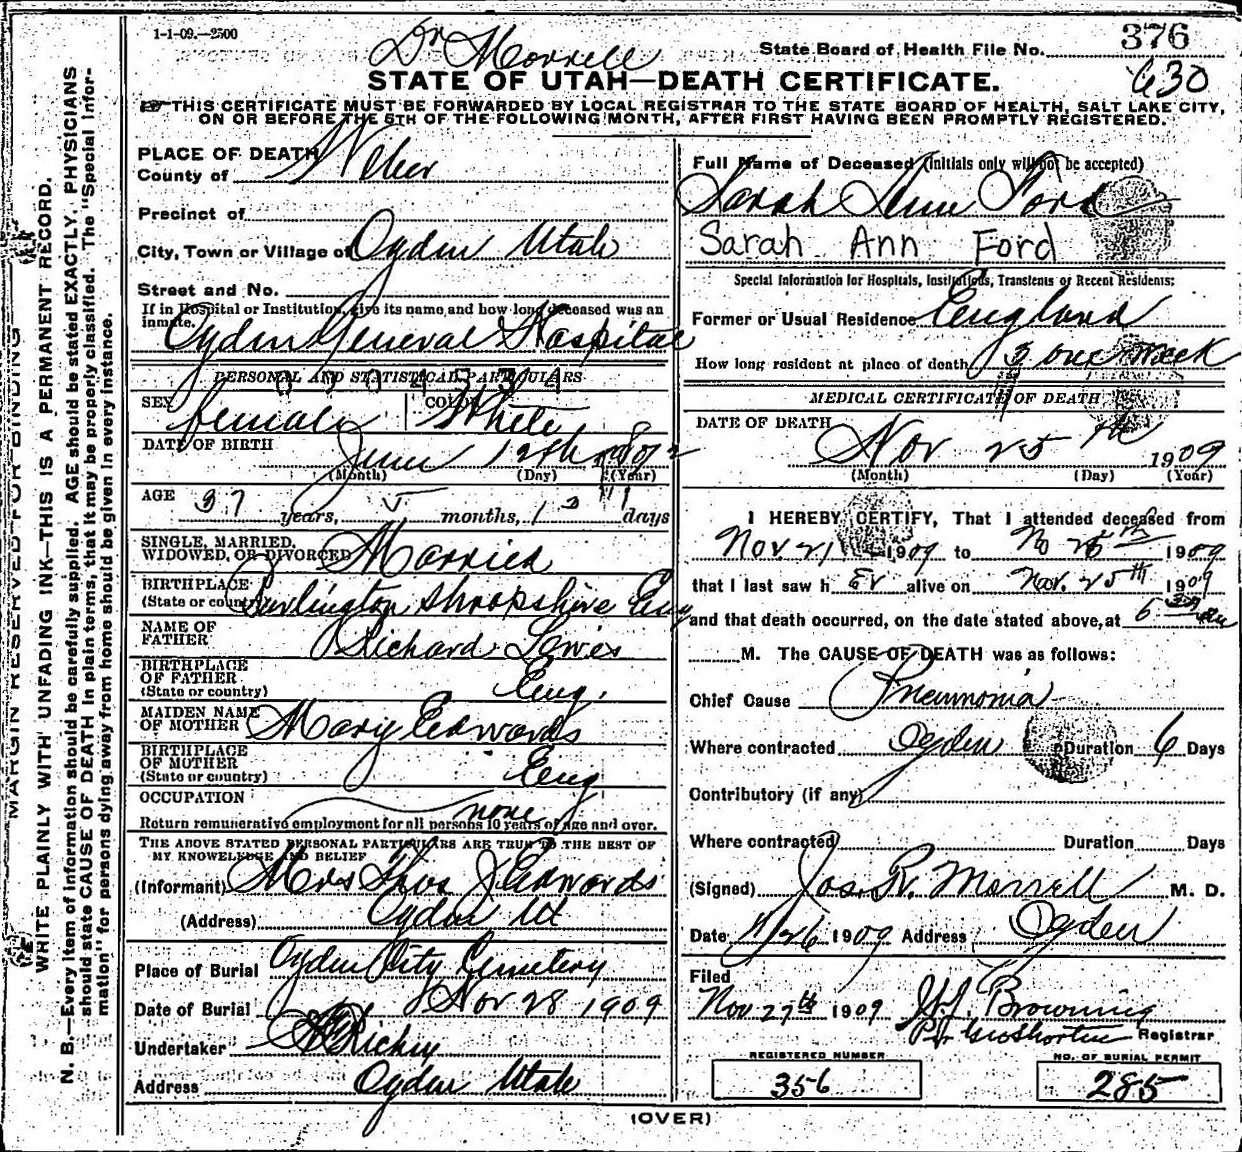 1-1-09.—2500
Dr Morrell
State Board of Health File No. 376
STATE OF UTAH—DEATH CERTIFICATE. 630
THIS CERTIFICATE MUST BE FORWARDED BY LOCAL REGISTRAR TO THE STATE BOARD OF HEALTH, SALT LAKE CITY,
ON OR BEFORE THE 5TH OF THE FOLLOWING MONTH, AFTER FIRST HAVING BEEN PROMPTLY REGISTERED.
MARGIN RESERVED FOR BINDING
WRITE PLAINLY WITH UNFADING INK—THIS IS A PERMANENT RECORD.
N. B.—Every item of information should be carefully supplied. AGE should be stated EXACTLY. PHYSICIANS
should state CAUSE OF DEATH in plain terms, that it may be properly classified. The "Special Infor-
mation" for persons dying away from home should be given in every instance.
PLACE OF DEATH
County of Weber
Precinct of
City, Town or Village of Ogden Utah
Street and No.
If in Hospital or Institution, give its name, and how long deceased was an
inmate.
Ogden General Hospital
PERSONAL AND STATISTICAL PARTICULARS
SEX female COLOR White
DATE OF BIRTH June 12th 1872
(Month) (Day) (Year)
AGE 37 years, 5 months, 13 days
SINGLE, MARRIED,
WIDOWED, OR DIVORCED Married
BIRTHPLACE
(State or country) Shropshire Eng
NAME OF
FATHER Richard Lewis
BIRTHPLACE
OF FATHER
(State or country) Eng.
MAIDEN NAME
OF MOTHER Mary Edwards
BIRTHPLACE
OF MOTHER
(State or country) Eng
OCCUPATION none
Return remunerative employment for all persons 10 years of age and over.
THE ABOVE STATED PERSONAL PARTICULARS ARE TRUE TO THE BEST OF
MY KNOWLEDGE AND BELIEF
(Informant) Mrs Thos J Edwards
(Address) Ogden Ut
Place of Burial Ogden City Cemetery
Date of Burial Nov 28 1909
Undertaker Richey
Address Ogden Utah
Full Name of Deceased (initials only will not be accepted)
Sarah Ann Ford
Sarah Ann Ford
Special Information for Hospitals, Institutions, Transients or Recent Residents:
Former or Usual Residence England
How long resident at place of death one week
MEDICAL CERTIFICATE OF DEATH
DATE OF DEATH Nov 25th 1909
(Month) (Day) (Year)
I HEREBY CERTIFY, That I attended deceased from
Nov 21 1909 to No 25th 1909
that I last saw her alive on Nov. 25th 1909
and that death occurred, on the date stated above, at 6 30
M. The CAUSE OF DEATH was as follows:
Chief Cause Pneumonia
Where contracted Ogden Duration 6 Days
Contributory (if any)
Where contracted Duration Days
(Signed) Jos. R. Morrell M. D.
Date 11/26 1909 Address Ogden
Filed
Nov 27th 1909 Browning
Registrar
REGISTERED NUMBER
356
NO. OF BURIAL PERMIT
285
(OVER)